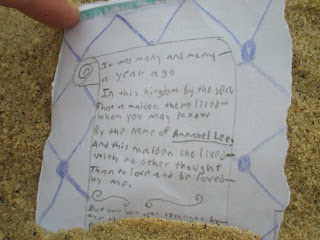 It was many and many
a year ago
In this kingdom by the sea
That a maiden there lived
whom you may know
By the name of Annabel Lee,
And this maiden she lived
with no other thought
Than to love and be loved
by me.
But our love was stronger by